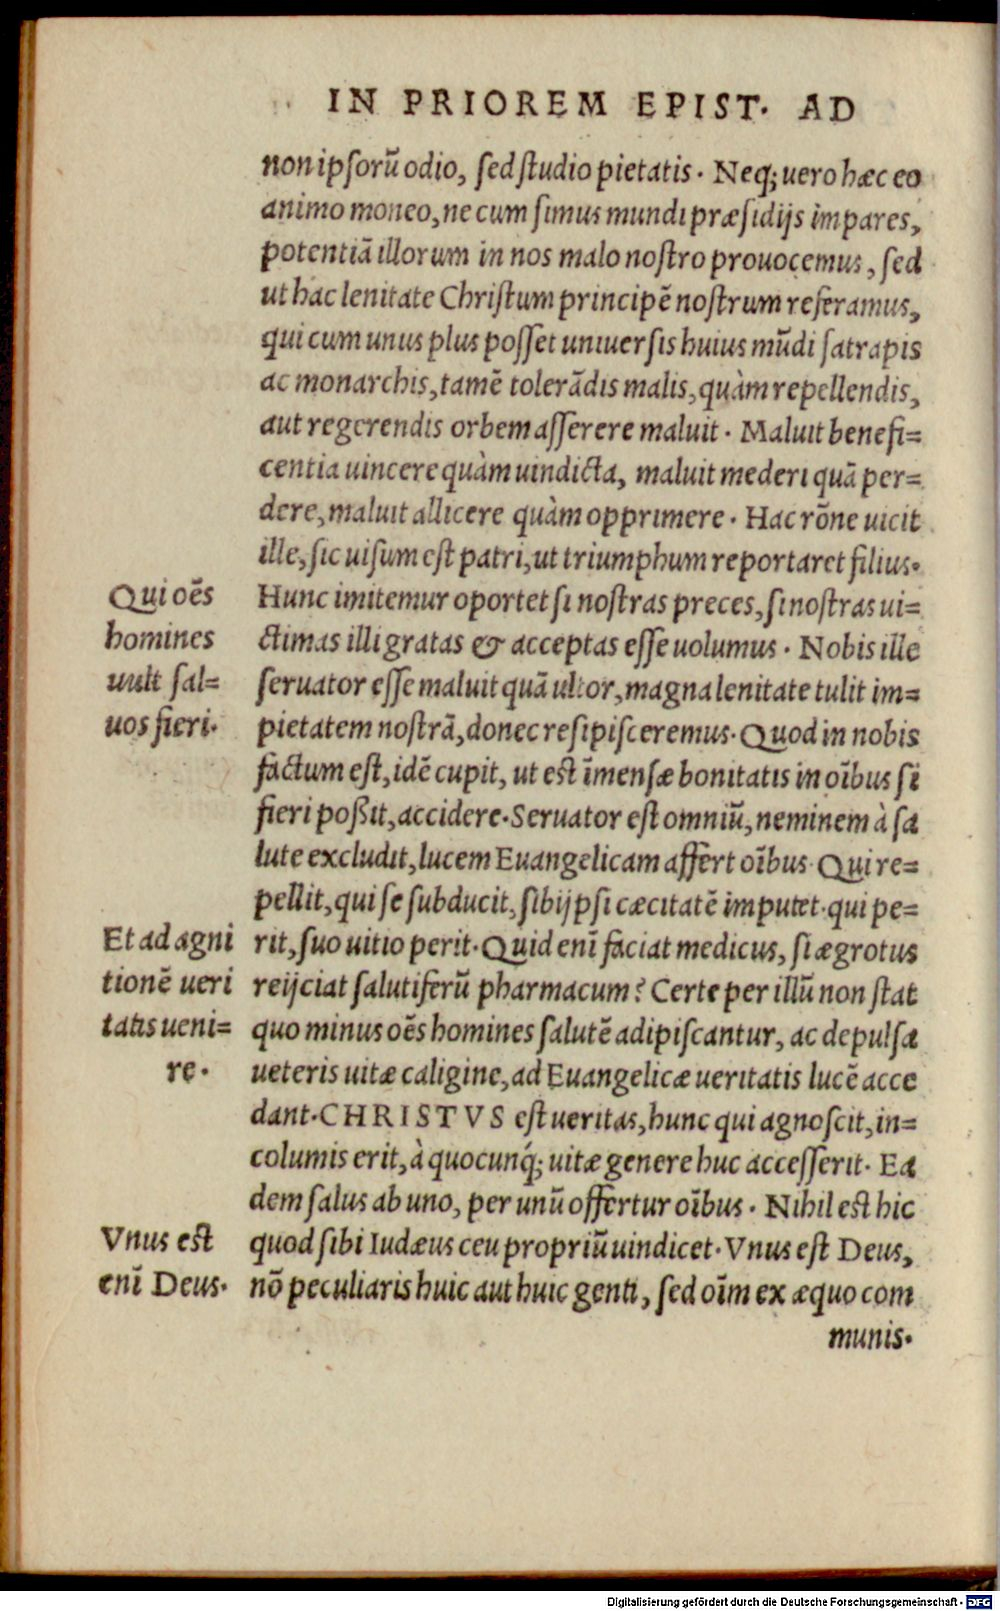 IN PRIOREM EPIST. AD
non ipsorũ odio, sed studio pietatis. Neq; uero hæc eo
animo moneo, ne cum simus mundi præsidijs impares,
potentiã illorum in nos malo nostro prouocemus, sed
ut hac lenitate Christum principẽ nostrum referamus,
qui cum unus plus posset uniuersis huius mũdi satrapis
ac monarchis, tamẽ tolerãdis malis, quàm repellendis,
aut regerendis orbem asserere maluit. Maluit benefi=
centia uincere quàm uindicta, maluit mederi quã per=
dere, maluit allicere quàm opprimere. Hac rõne uicit
ille, sic uisum est patri, ut triumphum reportaret filius.
Qui oẽs
homines
uult sal=
uos fieri.
Hunc imitemur oportet si nostras preces, si nostras ui=
ctimas illi gratas & acceptas esse uolumus. Nobis ille
seruator esse maluit quã ultor, magna lenitate tulit im=
pietatem nostrã, donec resipisceremus. Quod in nobis
factum est, idẽ cupit, ut est ĩmensæ bonitatis in oĩbus si
fieri poßit, accidere. Seruator est omniũ, neminem à sa
lute excludit, lucem Euangelicam affert oĩbus. Qui re=
pellit, qui se subducit, sibijpsi cæcitatẽ imputet. qui pe=
Et ad agni
tionẽ ueri
tatis ueni=
re.
rit, suo uitio perit. Quid enĩ faciat medicus, si ægrotus
reijciat salutiferũ pharmacum? Certe per illũ non stat
quo minus oẽs homines salutẽ adipiscantur, ac depulsa
ueteris uitæ caligine, ad Euangelicæ ueritatis lucẽ acce
dant. CHRISTVS est ueritas, hunc qui agnoscit, in=
columis erit, à quocunq́; uitæ genere huc accesserit. Ea
dem salus ab uno, per unũ offertur oĩbus. Nihil est hic
Vnus est
enĩ Deus.
quod sibi Iudæus ceu propriũ uindicet. Vnus est Deus,
nõ peculiaris huic aut huic genti, sed oĩm ex æquo com
munis.
Digitalisierung gefördert durch die Deutsche Forschungsgemeinschaft - DFG